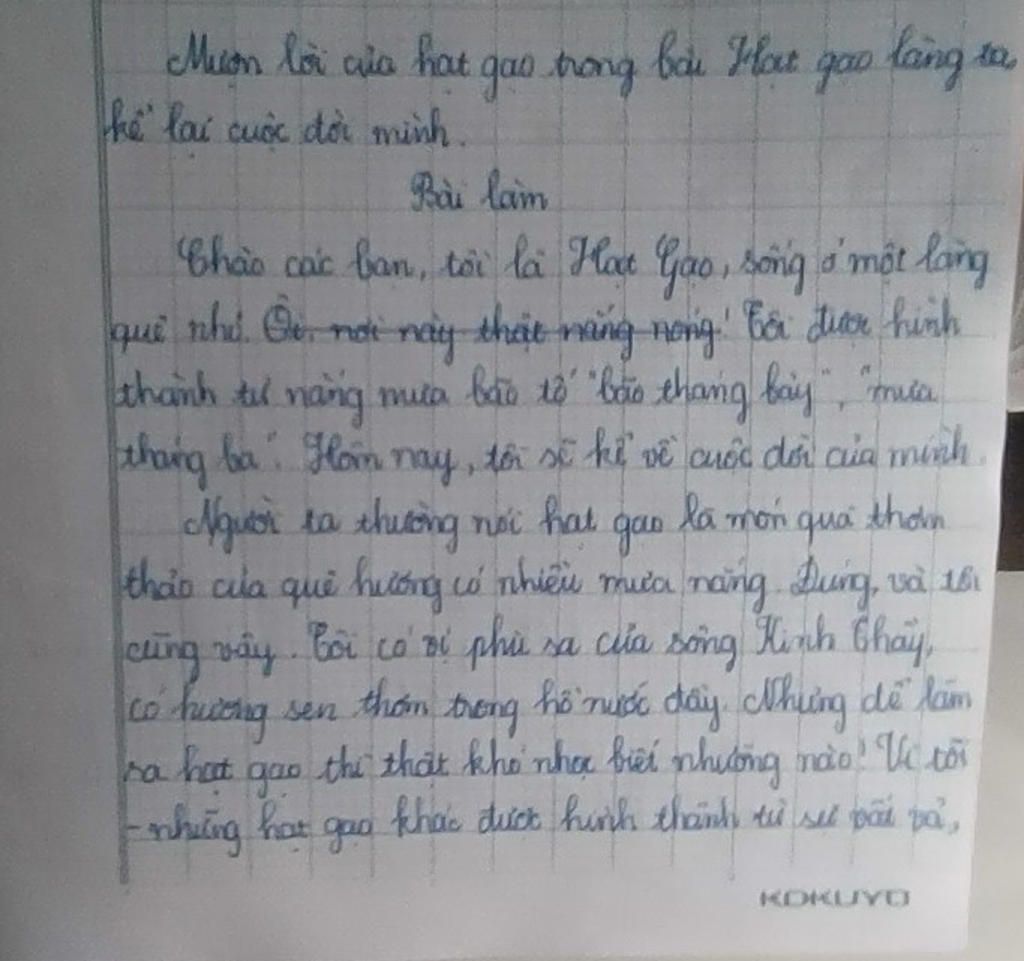 Mượn lời của hạt gạo trong bài Hạt gạo làng ta,
kể lại cuộc đời mình.
Bài làm
Chào các bạn, tôi là Hạt Gạo, sống ở một làng
quê nhỏ. Ôi, nơi này thật nắng nóng! Tôi được hình
thành từ nắng mưa bão tố "bão tháng bảy", "mưa
tháng ba". Hôm nay, tôi sẽ kể về cuộc đời của mình.
Người ta thường nói hạt gạo là món quà thơm
thảo của quê hương có nhiều mưa nắng. Đúng, và tôi
cũng vậy. Tôi có vị phù sa của sông Kinh Thầy,
có hương sen thơm trong hồ nước đầy. Nhưng để làm
ra hạt gạo thì thật khó nhọc biết nhường nào! Vì tôi
- những hạt gạo khác được hình thành từ sự vất vả,
KOKUYO